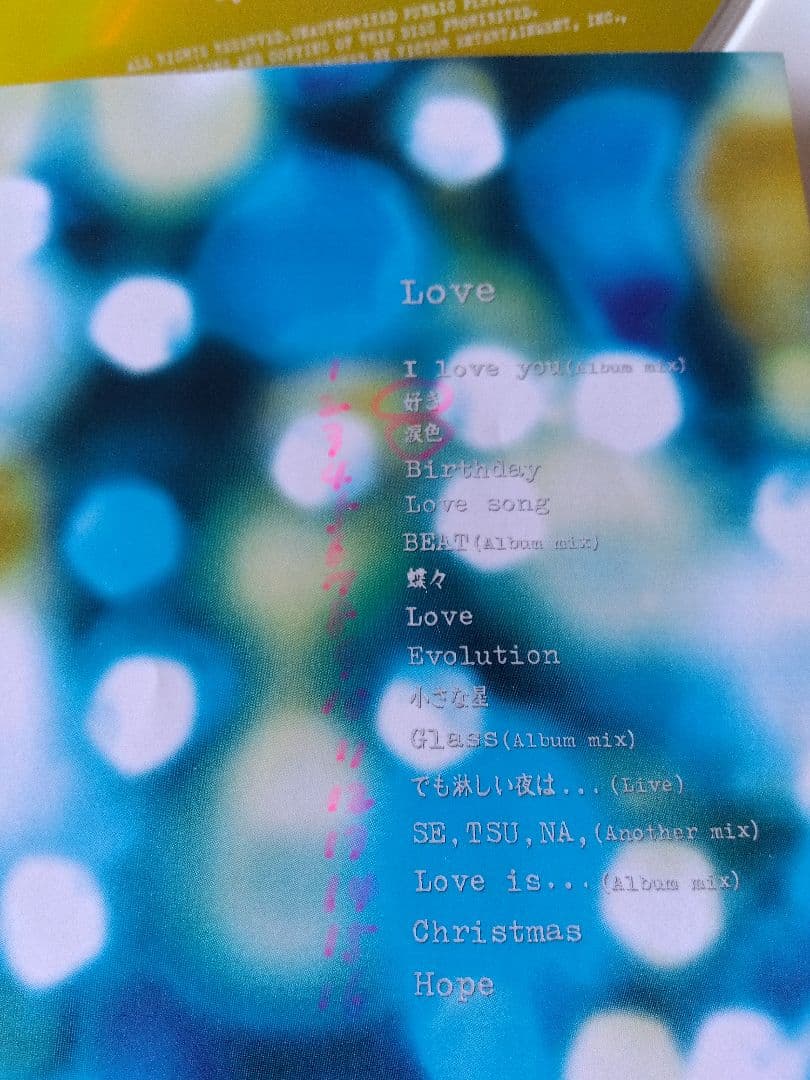 ALL RIGHTS RESERVED. UNAUTHORIZED PUBLIC
AND COPYING OF THIS DISC PROHIBITED.
BY VICTOR ENTERTAINMENT, INC.,
Love
1 I love you(Album mix)
2 好き
3 涙色
4 Birthday
5 Love song
6 BEAT(Album mix)
7 蝶々
8 Love
Evolution
10 小さな星
11 Glass(Album mix)
12 でも淋しい夜は...(Live)
13 SE,TSU,NA,(Another mix)
14 Love is...(Album mix)
15 Christmas
16 Hope